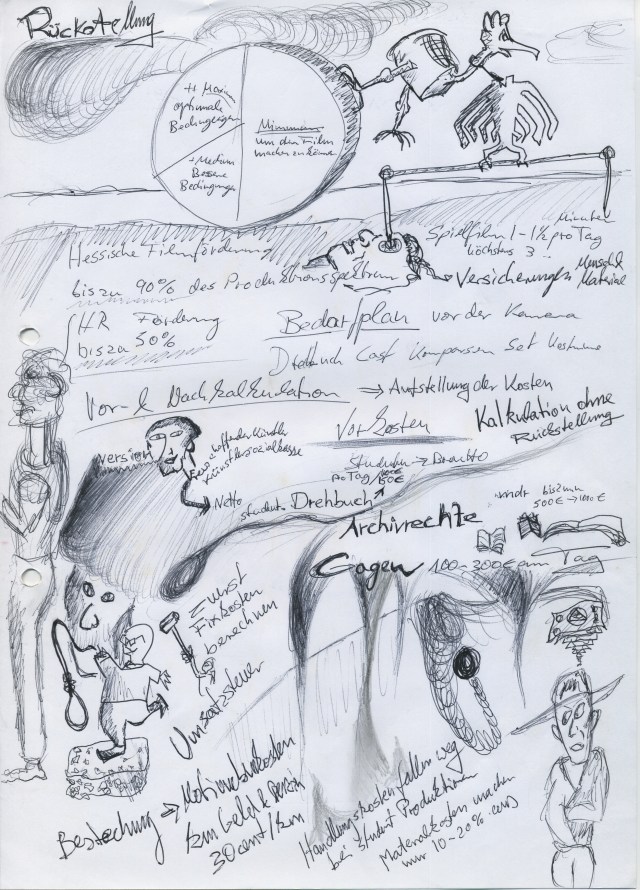 Rückstellung
optimale
Bedingungen
Minimum
um den Film
machen zu können
+ Medium
Bessere
Bedingungen
Minuten
Spielfilm 1-1½ pro Tag
höchstens 3
Hessische Filmförderung
Versicherungen Mensch &
Material
bis zu 90% des Produktionsspektrum
HR Förderung
bis zu 50%
Bedarfplan vor der Kamera
Drehbuch Cast Komparsen Set Kostüme
Vor- & Nachkalkulation → Aufstellung der Kosten
Kalkulation ohne
Rückstellung
Vorkosten
version
Künstlersozialkasse
→ Brutto
pro Tag
→ Netto
Drehbuch
bis zu
500€ → 1000€
Archivrechte
Gagen 100-200€ am Tag
Zuerst
Fixkosten
berechnen
Umsatzsteuer
Bestechung →
km Geld & Benzin
30cent/km
Handlungskosten fallen weg
bei student Produktionen
Materialkosten machen
nur 10-20% aus